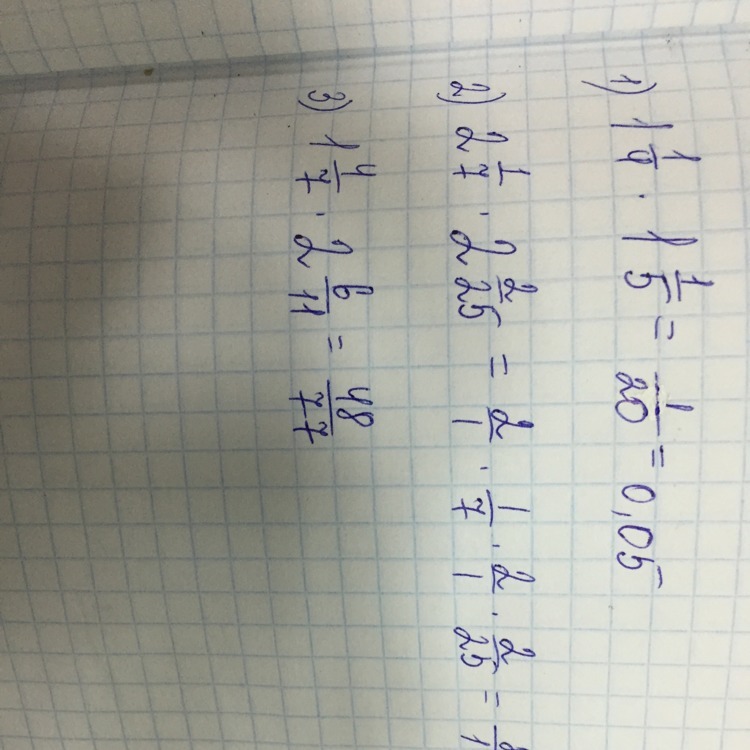 1) 1 1/4 · 1 1/5 = 1/20 = 0,05
2) 2 1/7 · 2 2/25 = 2/1 · 1/7 · 2/1 · 2/25 =
3) 1 4/7 · 2 6/11 = 48/77